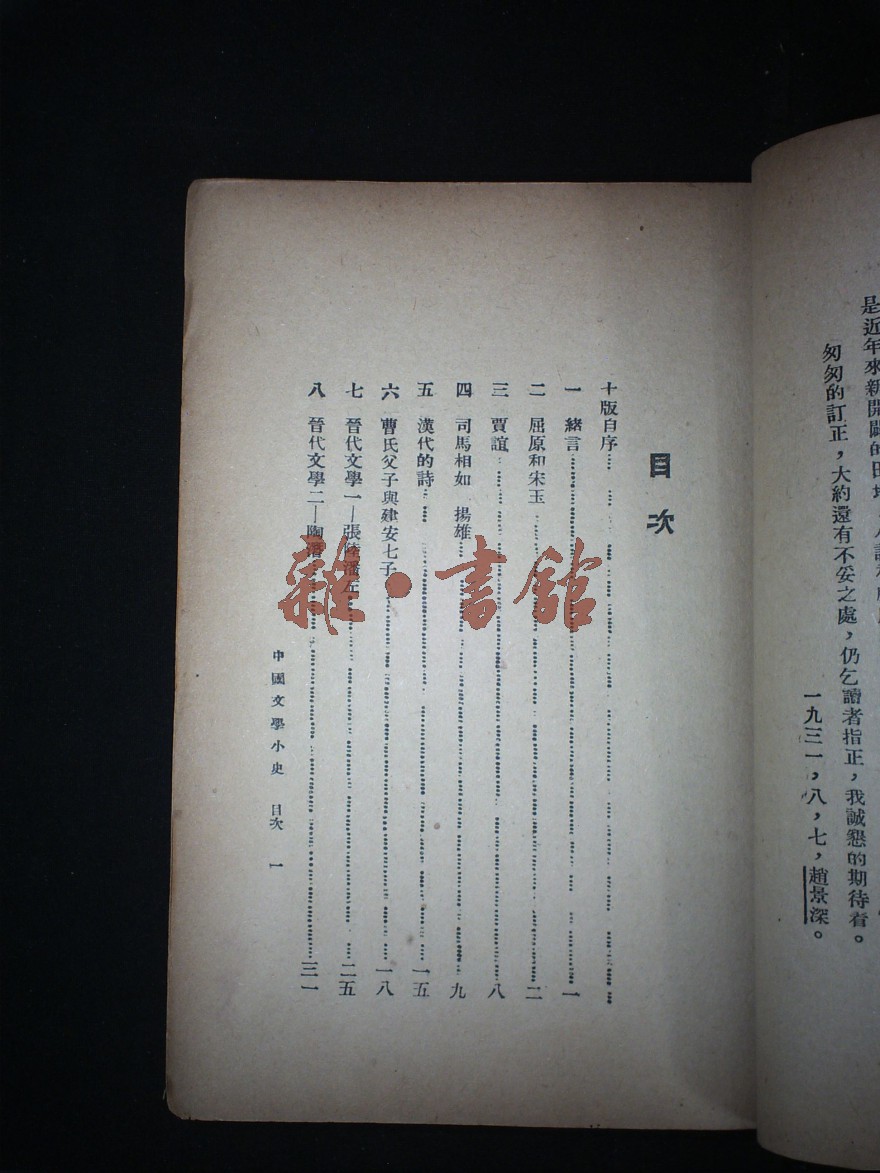 是近年來新開闢的田地
匆匆的訂正，大約還有不妥之處，仍乞讀者指正，我誠懇的期待着。
一九三一，八，七，趙景深。
目次
十版自序
一 緒言 一
二 屈原和宋玉 二
三 賈誼 八
四 司馬相如 揚雄 九
五 漢代的詩 一五
六 曹氏父子與建安七子 一八
七 晉代文學一—張陸潘左 二五
八 晉代文學二—陶潛 三一
中國文學小史 目次 一
雜·書館